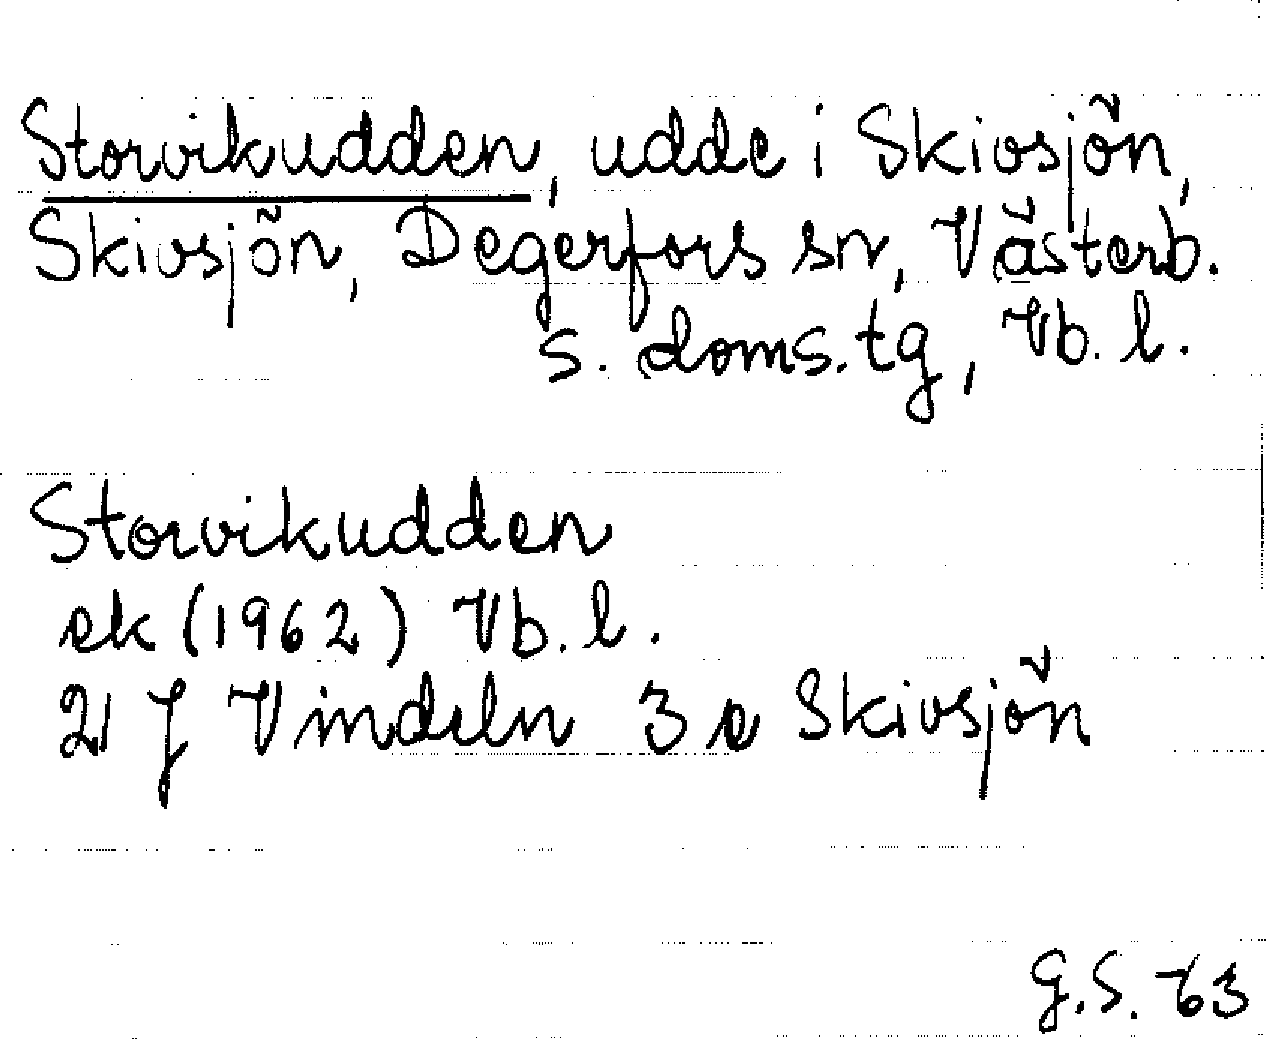 Storvikudden, udde i Skivsjön,
Skivsjön, Degerfors sn, Västerb.
s. doms.tg, Vb. l.
Storvikudden
ek (1962) Vb. l.
21 J Vindeln 3 e Skivsjön
G.S. 63